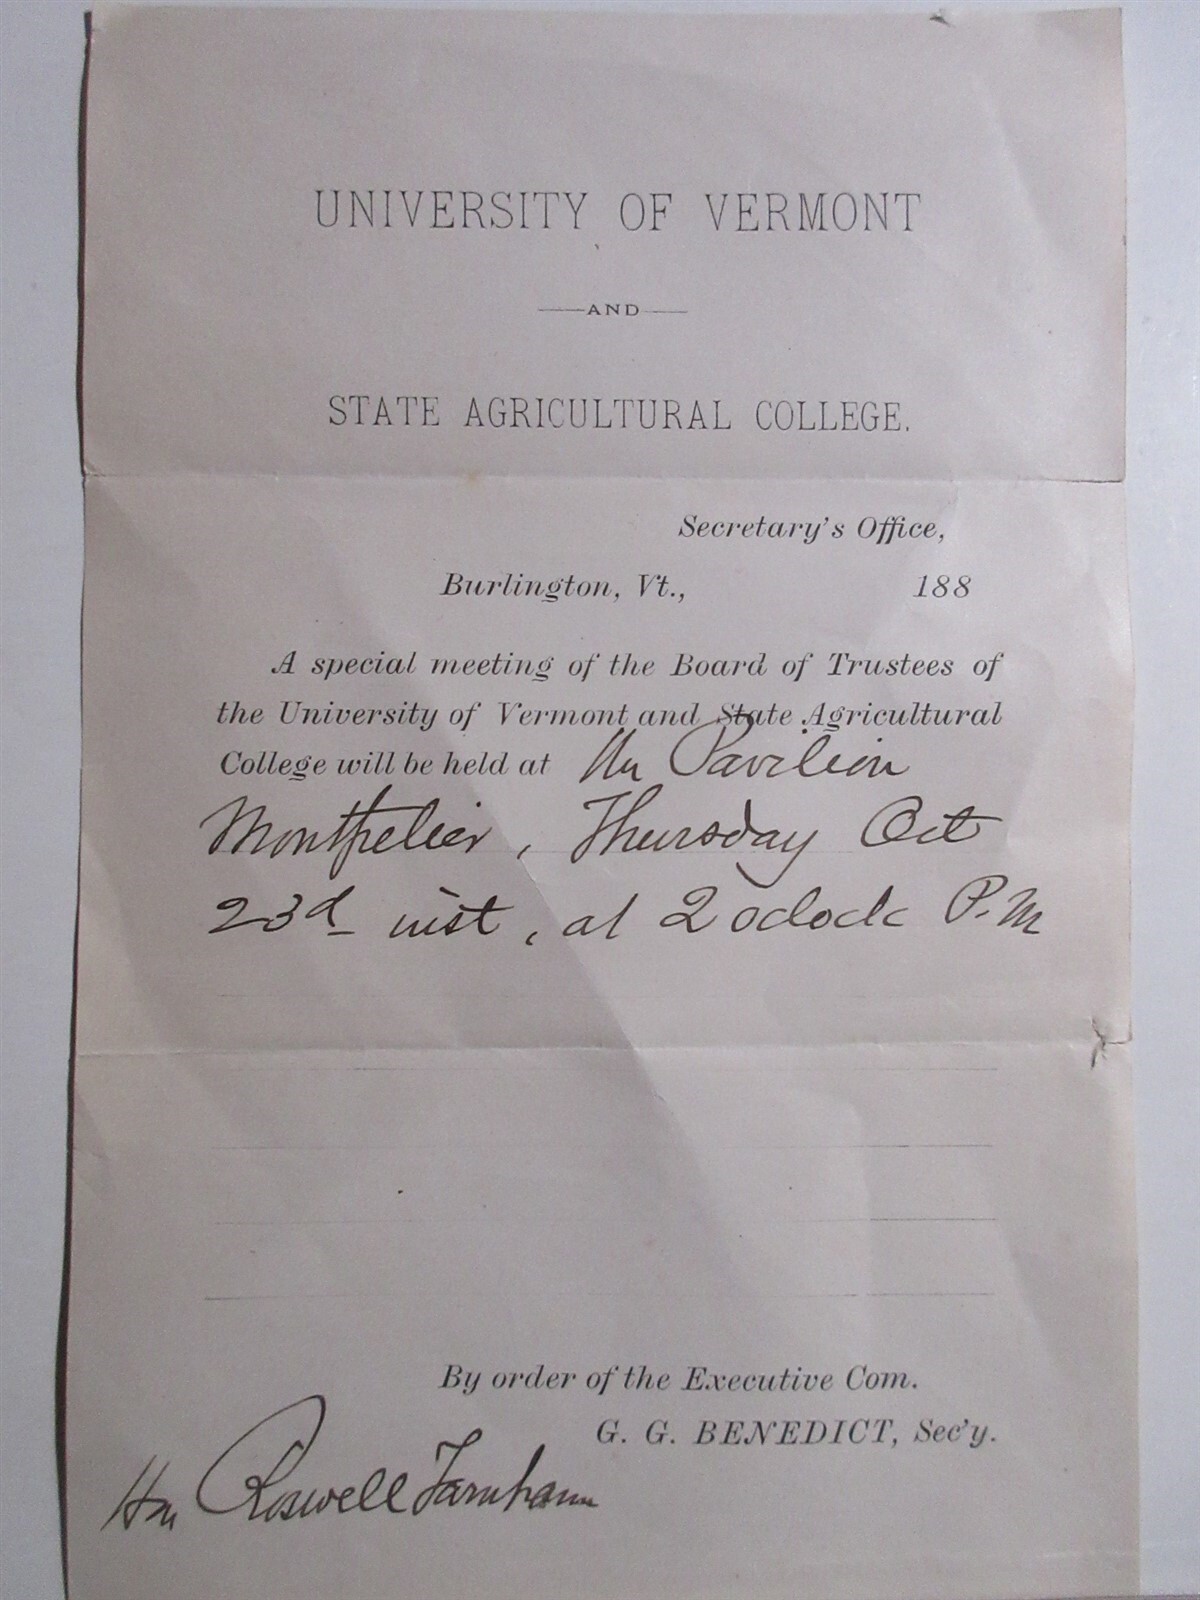 UNIVERSITY OF VERMONT
AND
STATE AGRICULTURAL COLLEGE.
Secretary's Office,
Burlington, Vt., 188
A special meeting of the Board of Trustees of
the University of Vermont and State Agricultural
College will be held at the Pavilion
Montpelier, Thursday Oct
23d inst, at 2 oclock P.M
By order of the Executive Com.
G. G. BENEDICT, Sec'y.
Hon Roswell Farnham